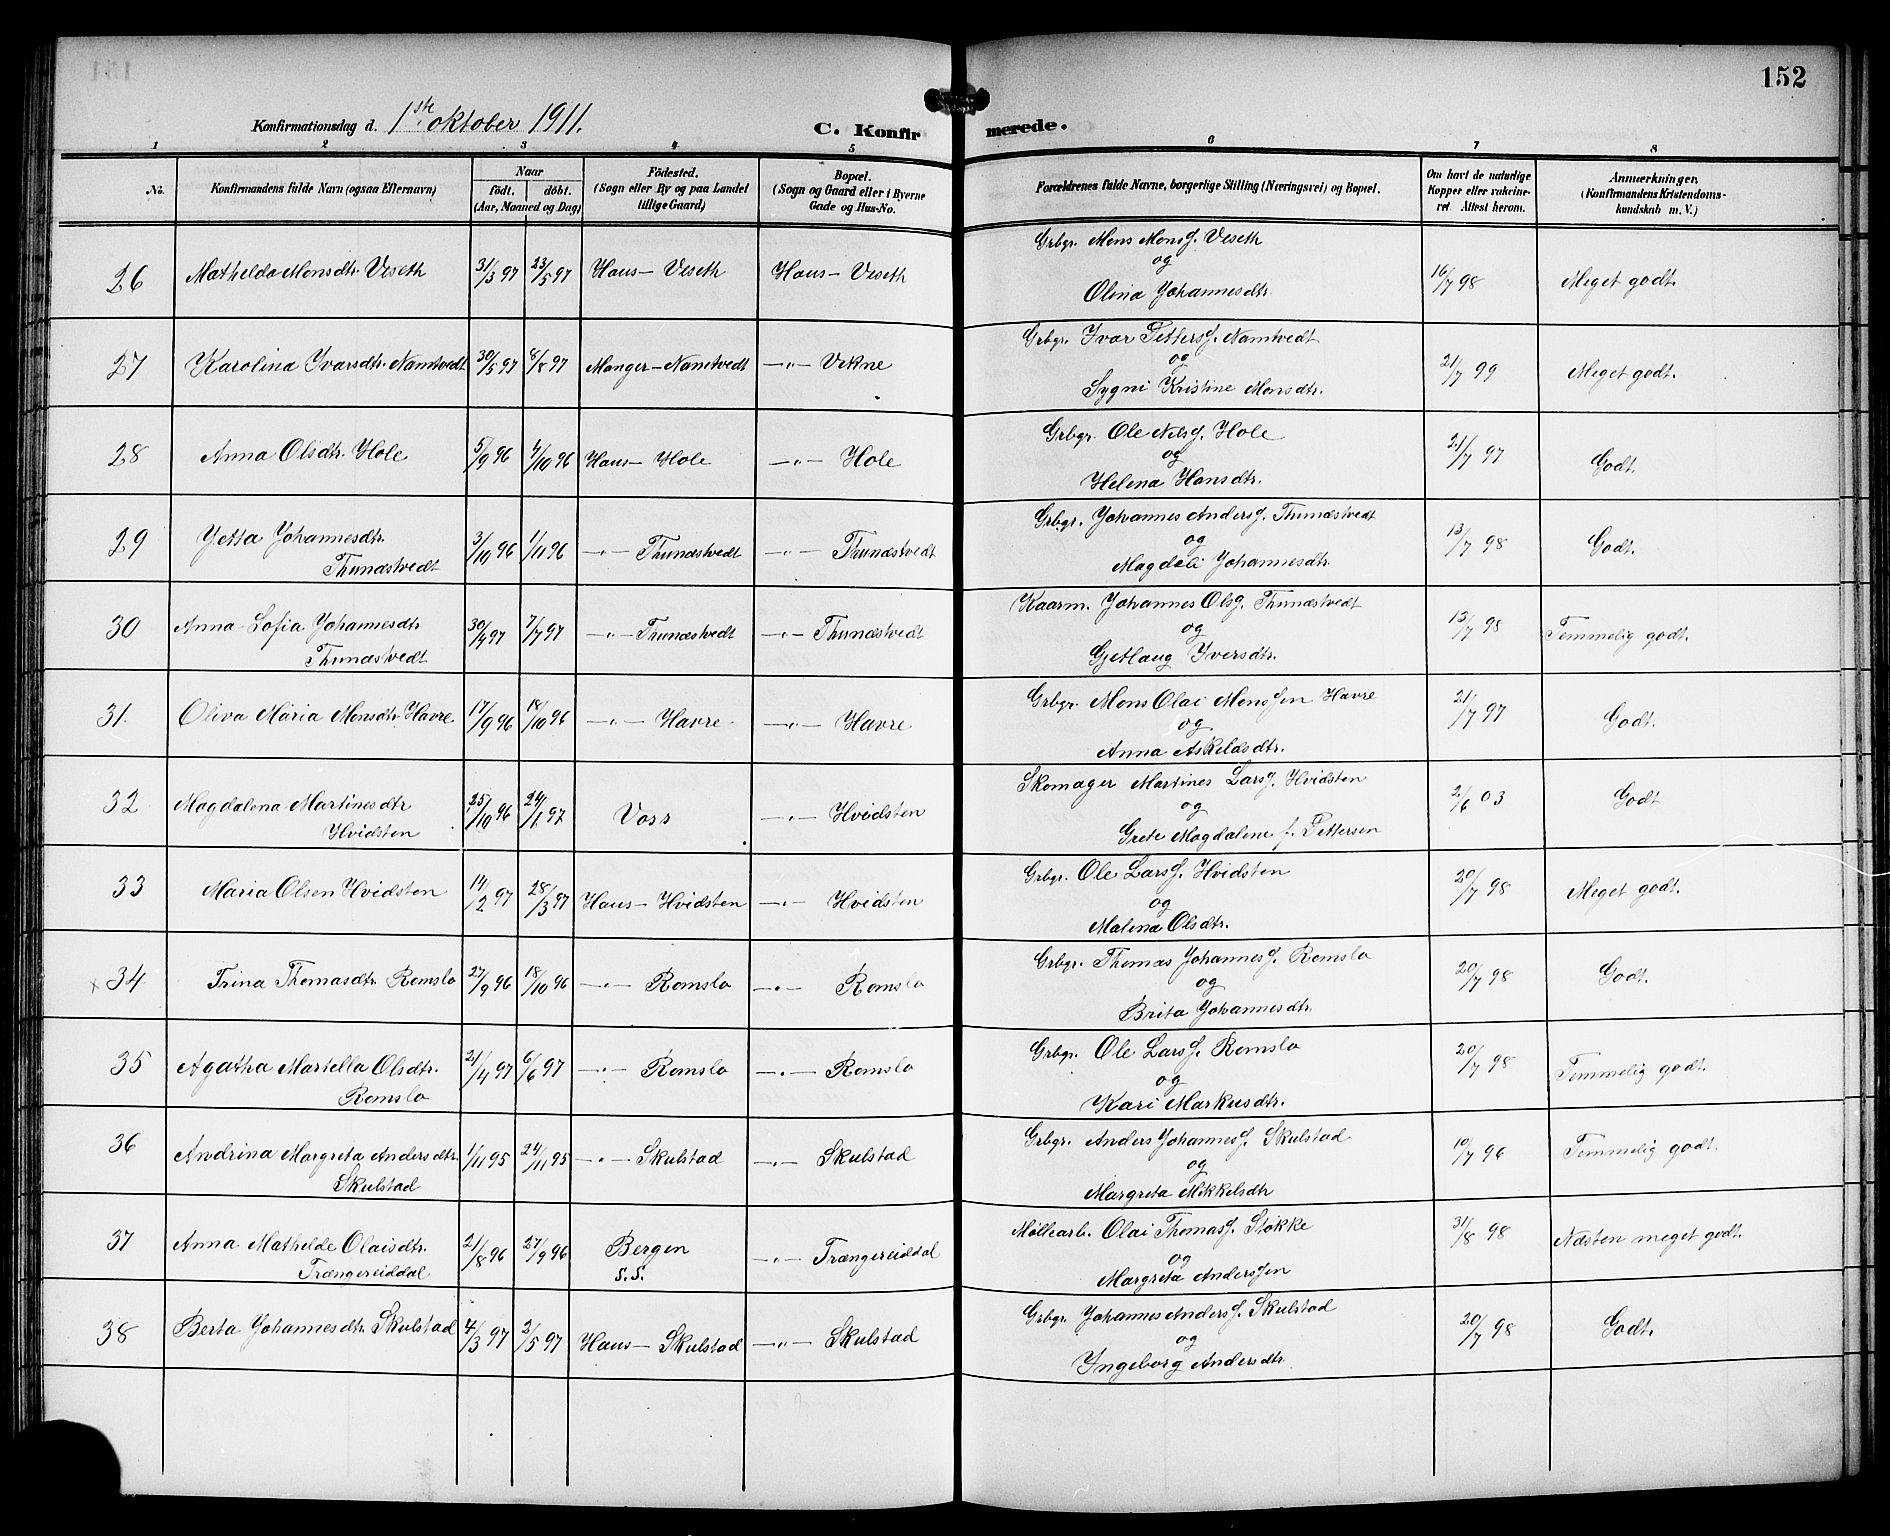 152
Konfirmationsdag d. 1ste oktober 1911.
C. Konfirmerede.
1 2 3 4 5 6 7 8
No. Konfirmandens fulde Navn (ogsaa Efternavn) Naar født. døbt. (Aar, Maaned og Dag) Födested. (Sogn eller By og paa Landet tillige Gaard) Bopæl. (Sogn og Gaard eller i Byerne Gade og Hus-No. Forældrenes fulde Navne, borgerlige Stilling (Næringsvei) og Bopæl. Om havt de naturlige Kopper eller vakcineret. Attest herom. Anmærkninger. (Konfirmandens Kristendomskundskab m. V.)
26 Mathilda Monsdtr. Veseth 31/3 97 23/5 97 Haus – Veseth Haus – Veseth Grbgr. Mons Monss. Veseth og Olina Johannesdtr. 16/7 98 Meget godt.
27 Karolina Ivarsdtr. Namtvedt 30/5 97 8/8 97 Manger – Namtvedt –"– Vikne Grbgr. Ivar Petterss. Namtvedt og Sygni Kristine Monsdtr. 21/7 99 Meget godt.
28 Anna Olsdtr. Hole 5/9 96 4/10 96 Haus – Hole –"– Hole Grbgr. Ole Nilss. Hole og Helena Hansdtr. 21/7 97 Godt.
29 Jetta Johannesdtr. Thunæstvedt 3/10 96 1/11 96 –"– Thunæstvedt –"– Thunæstvedt Grbgr. Johannes Anderss. Thunæstvedt og Magdeli Johannesdtr. 13/7 98 Godt.
30 Anna Sofia Johannesdtr Thunæstvedt 30/4 97 7/7 97 –"– Thunæstvedt –"– Thunæstvedt Kaarm. Johannes Olss. Thunæstvedt og Gjetlaug Iversdtr. 13/7 98 Temmelig godt.
31. Oliva Maria Monsdtr. Havre 17/9 96 18/10 96 –"– Havre –"– Havre Grbgr. Mons Olai Monssen Havre og Anna Askeldsdtr. 21/7 97 Godt.
32 Magdalena Martinesdtr Hvidsten 25/10 96 24/1 97 Voss –"– Hvidsten Skomager Martines Larss. Hvidsten og Grete Magdalene f. Pettersen 2/6 03 Godt
33 Maria Olsen Hvidsten 14/2 97 28/3 97 Haus – Hvidsten –"– Hvidsten Grbgr. Ole Larss. Hvidsten og Malina Olsdtr. 20/7 98 Meget godt.
× 34 Trina Thomasdtr. Romslo 27/9 96 18/10 96 –"– Romslo –"– Romslo Grbgr. Thomas Johanness. Romslo og Brita Johannesdtr. 20/7 98 Godt.
35 Agatha Martella Olsdtr. Romslo 21/4 97 6/6 97 –"– Romslo –"– Romslo Grbgr. Ole Larss. Romslo og Kari Markusdtr. 20/7 98 Temmelig godt.
36 Andrina Margreta Andersdtr. Skulstad 1/11 95 24/11 95 –"– Skulstad –"– Skulstad Grbgr. Anders Johanness. Skulstad og Margreta Mikkelsdtr 10/7 96 Temmelig godt.
37 Anna Mathilde Olaisdtr. Trængereiddal 21/8 96 27/9 96 Bergen S.S. –"– Trængereiddal Møllearb. Olai Thomass. Støkke og Margreta Anderssen 31/8 98 Næsten meget godt.
38 Berta Johannesdtr. Skulstad 4/3 97 2/5 97 Haus – Skulstad –"– Skulstad Grbgr. Johannes Anderss. Skulstad og Ingeborg Andersdtr. 20/7 98 Godt.